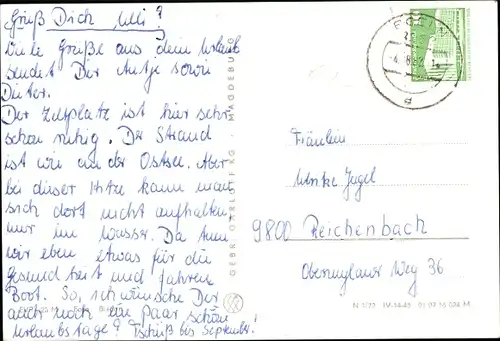 Grüß Dich Ulli?
Viele Grüße aus dem Urlaub
sendet Dir Antje sowie
Dieter.
Der Zeltplatz ist hier sehr
schön ruhig. Der Strand
ist wie an der Ostsee. Aber
bei dieser Hitze kann man
sich dort nicht aufhalten,
nur im Wasser. Da tun
wir eben etwas für die
Gesundheit und fahren
Boot. So, ich wünsche Dir
auch noch ein paar schöne
Urlaubstage? Tschüß bis September!
GEBR. GARLOFF KG · MAGDEBURG
EGELN
Fräulein
Ulrike Jugel
9800 Reichenbach
Obermylauer Weg 36
IV-14-45 01 07 16 024 M